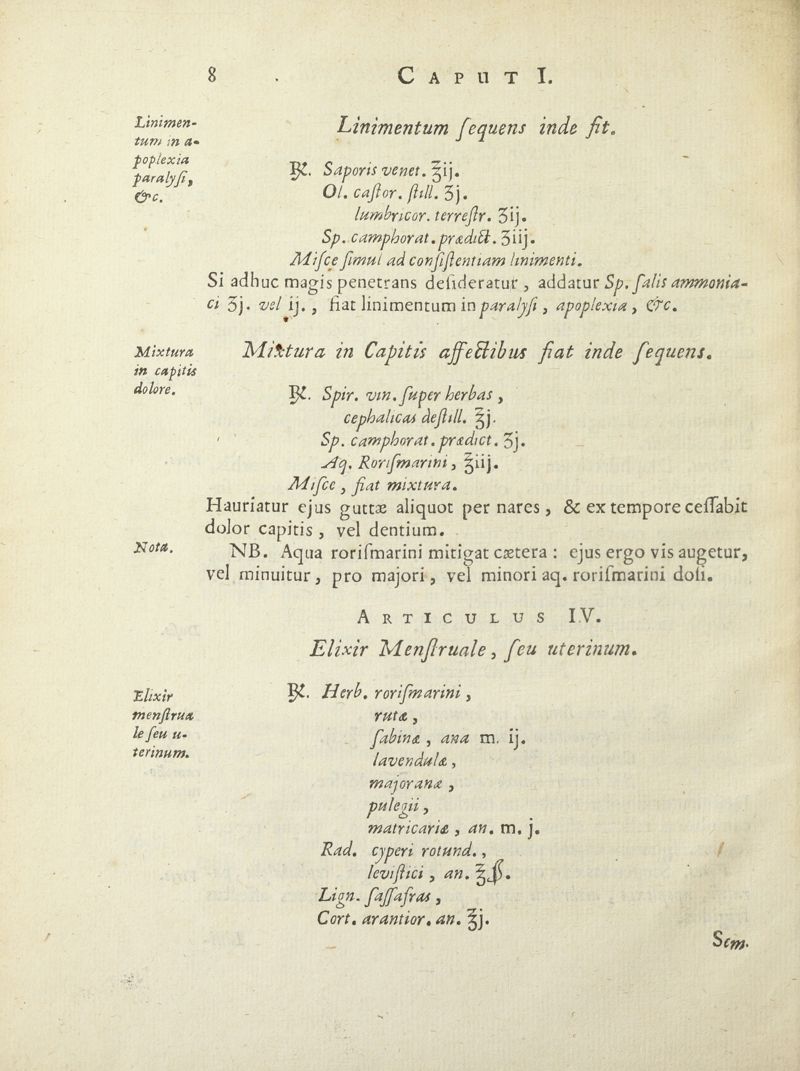 8 CAPUT I.
Linimen-
tum in a-
poplexia
paralysi,
&c.
Linimentum ſequens inde fit.
℞. Saponis venet. ℥ij.
Ol. caſtor. ſtill. ʒj.
lumbricor. terreſtr. ʒij.
Sp. camphorat. prædict. ʒiij.
Miſce ſimul ad conſiſtentiam linimenti.
Si adhuc magis penetrans deſideratur, addatur Sp. ſalis ammonia-
ci ʒj. vel ij., fiat linimentum in paralyſi, apoplexia, &c.
Mixtura
in capitis
dolore.
Mixtura in Capitis affectibus fiat inde ſequens.
℞. Spir. vin. ſuper herbas,
cephalicas deſtill. ℥j.
Sp. camphorat. prædict. ʒj.
Aq. Roriſmarini, ℥iij.
Miſce, fiat mixtura.
Hauriatur ejus guttæ aliquot per nares, & ex tempore ceſſabit
dolor capitis, vel dentium.
Nota.
NB. Aqua roriſmarini mitigat cætera: ejus ergo vis augetur,
vel minuitur, pro majori, vel minori aq. roriſmarini doſi.
ARTICULUS IV.
Elixir Menſtruale, ſeu uterinum.
Elixir
menſtrua
le ſeu u-
terinum.
℞. Herb. roriſmarini,
rutæ,
ſabinæ, ana m. ij.
lavendulæ,
majoranæ,
pulegii,
matricariæ, an. m. j.
Rad. cyperi rotund.,
leviſtici, an. ℥ß.
Lign. ſaſſafras,
Cort. arantior. an. ℥j.
Sem-